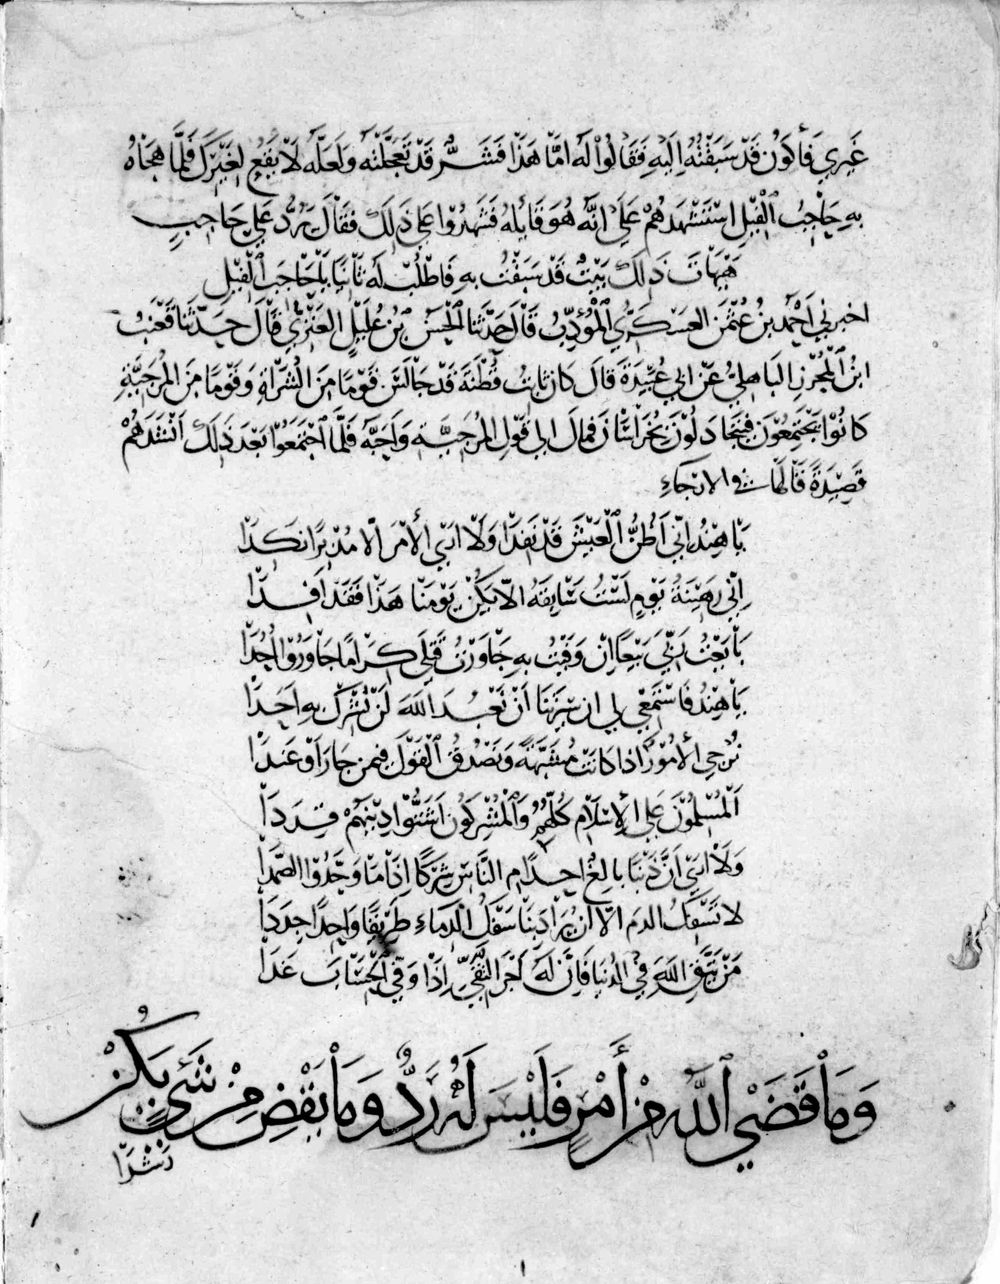 غيري فأكون قد سبقته اليه فقالوا له امّا هذا فشرّ قد تعجّلته ولعلّه لا يقع لغيرك فلمّا هجاه
به حاجب الفيل استشهدهم على انّه هو قائله فشهدوا على ذلك فقال يردّ على حاجبٍ
هيهات ذلك بيت قد سبقت به فاطلب له ثانيا يا حاجب الفيل
اخبرني احمد بن عثمن العسكري المؤدّب قال حدّثنا الحسن بن عليل العنزيّ قال حدّثنا قعنب
ابن المحرز الباهليّ عن ابي عبيدة قال كان ثابت قطنة قد جالس قوما من الشراة وقوما من المرجية
كانوا يجتمعون فيتجادلون بخراسان فمال الى قول المرجية واحبّه فلمّا اجتمعوا بعد ذلك انشدهم
قصيدة قالها في الارجاء
يا هند انّي اظنّ العيش قد نفدا ولا ارى الأمر الّا مدبرا نكدا
انّي رهينة يوم لست سابقه الّا يكن يومنا هذا فقد افدا
بايعت ربّي بيعا ان وفيت به جاورت قتلى كراما جاوروا احدا
يا هند فاستمعي لي ان سيرتنا أن نعبد الله لن نشرك به احدا
نرجي الأمور اذا كانت مشبّهة ونصدق القول فيمن جار او عندا
المسلمون على الإسلام كلّهم والمشركون اشتّوا دينهم قددا
ولا ارى أنّ ذنبا بالغ احدا م الناس شركا إذا ما وحّدوا الصمدا
لا نسفك الدم الّا ان يراد بنا سفك الدماء طريقا واحدا جددا
من يتّق الله في الدنيا فإنّ له اجر التّقيّ إذا وفّى الحساب غدا
وما قضى الله من أمر فليس له ردّ وما يقض من شيء يكن
رشدا